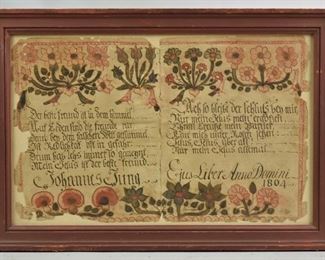 Der beste freund ist in dem himmel
Auf Erden sind die freunde rar
Dann bey dem falschen welt getümmel
Ist Redlichkeit oft in gefahr
Drum hab ichs immer so gemeynt
Mein Jesus ist der beste freund
Johannes Jung
Ach so bleibt der schluß bey mir
Nur meine Jesus mein ergötzlich
Jesus Jesus über all
Nur mein Jesus allemal
Ejus Liber Anno Domini
1804